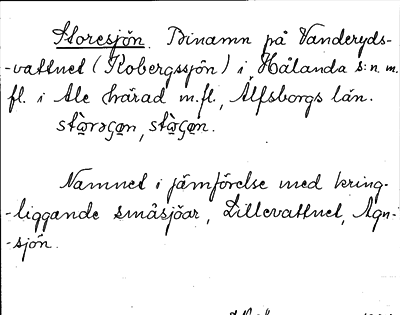 Storesjön. Binamn på Vanderyds-
-vattnet (Kobergssjön) i Hålanda s:n m.
fl. i Ale härad m.fl., Älfsborgs län.
Namnet i jämförelse med kring-
-liggande småsjöar, Lillevattnet, Agn-
-sjön.